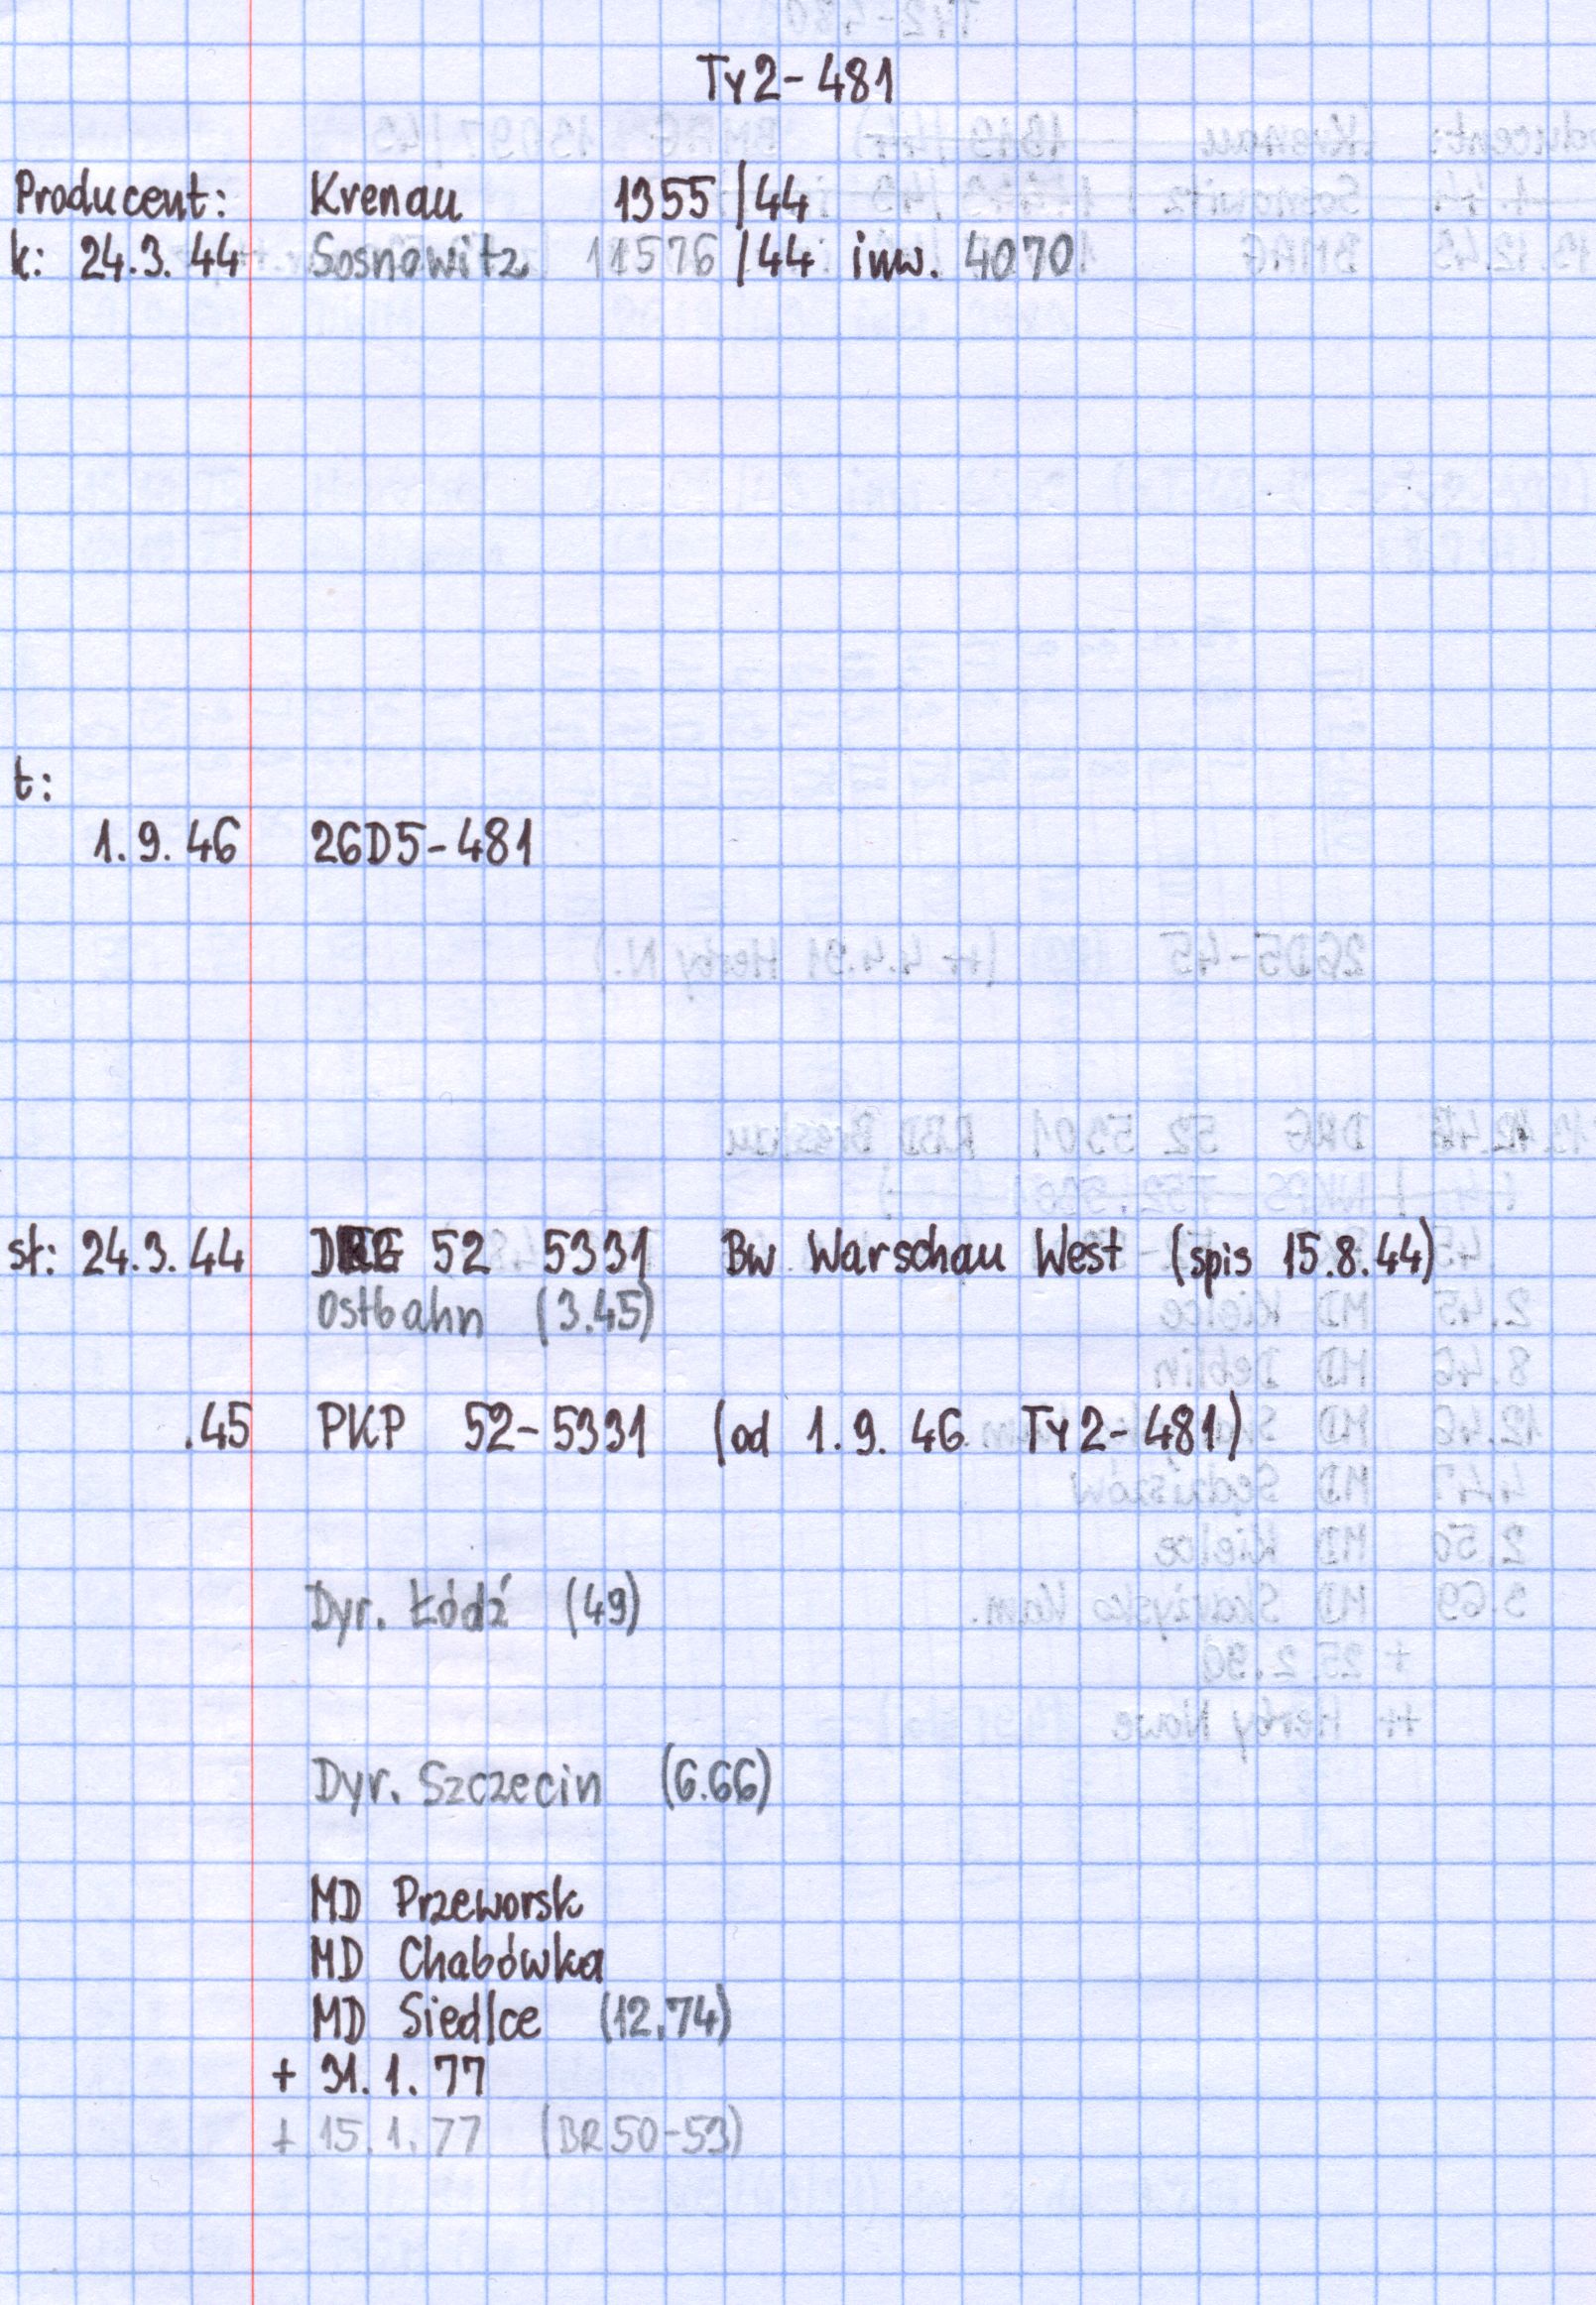 Ty2-481
Producent: Krenau 1355/44
k: 24.3.44 Sosnowitz 11576/44 inw. 4070
t:
1.9.46 26D5-481
st: 24.3.44 52 5331 Bw Warschau West (spis 15.8.44)
Ostbahn (3.45)
.45 PKP 52-5331 (od 1.9.46 Ty2-481)
Dyr. Łódź (49)
Dyr. Szczecin (6.66)
MD Przeworsk
MD Chabówka
MD Siedlce (12.74)
+ 31.1.77
+ 15.1.77 (BR 50-53)